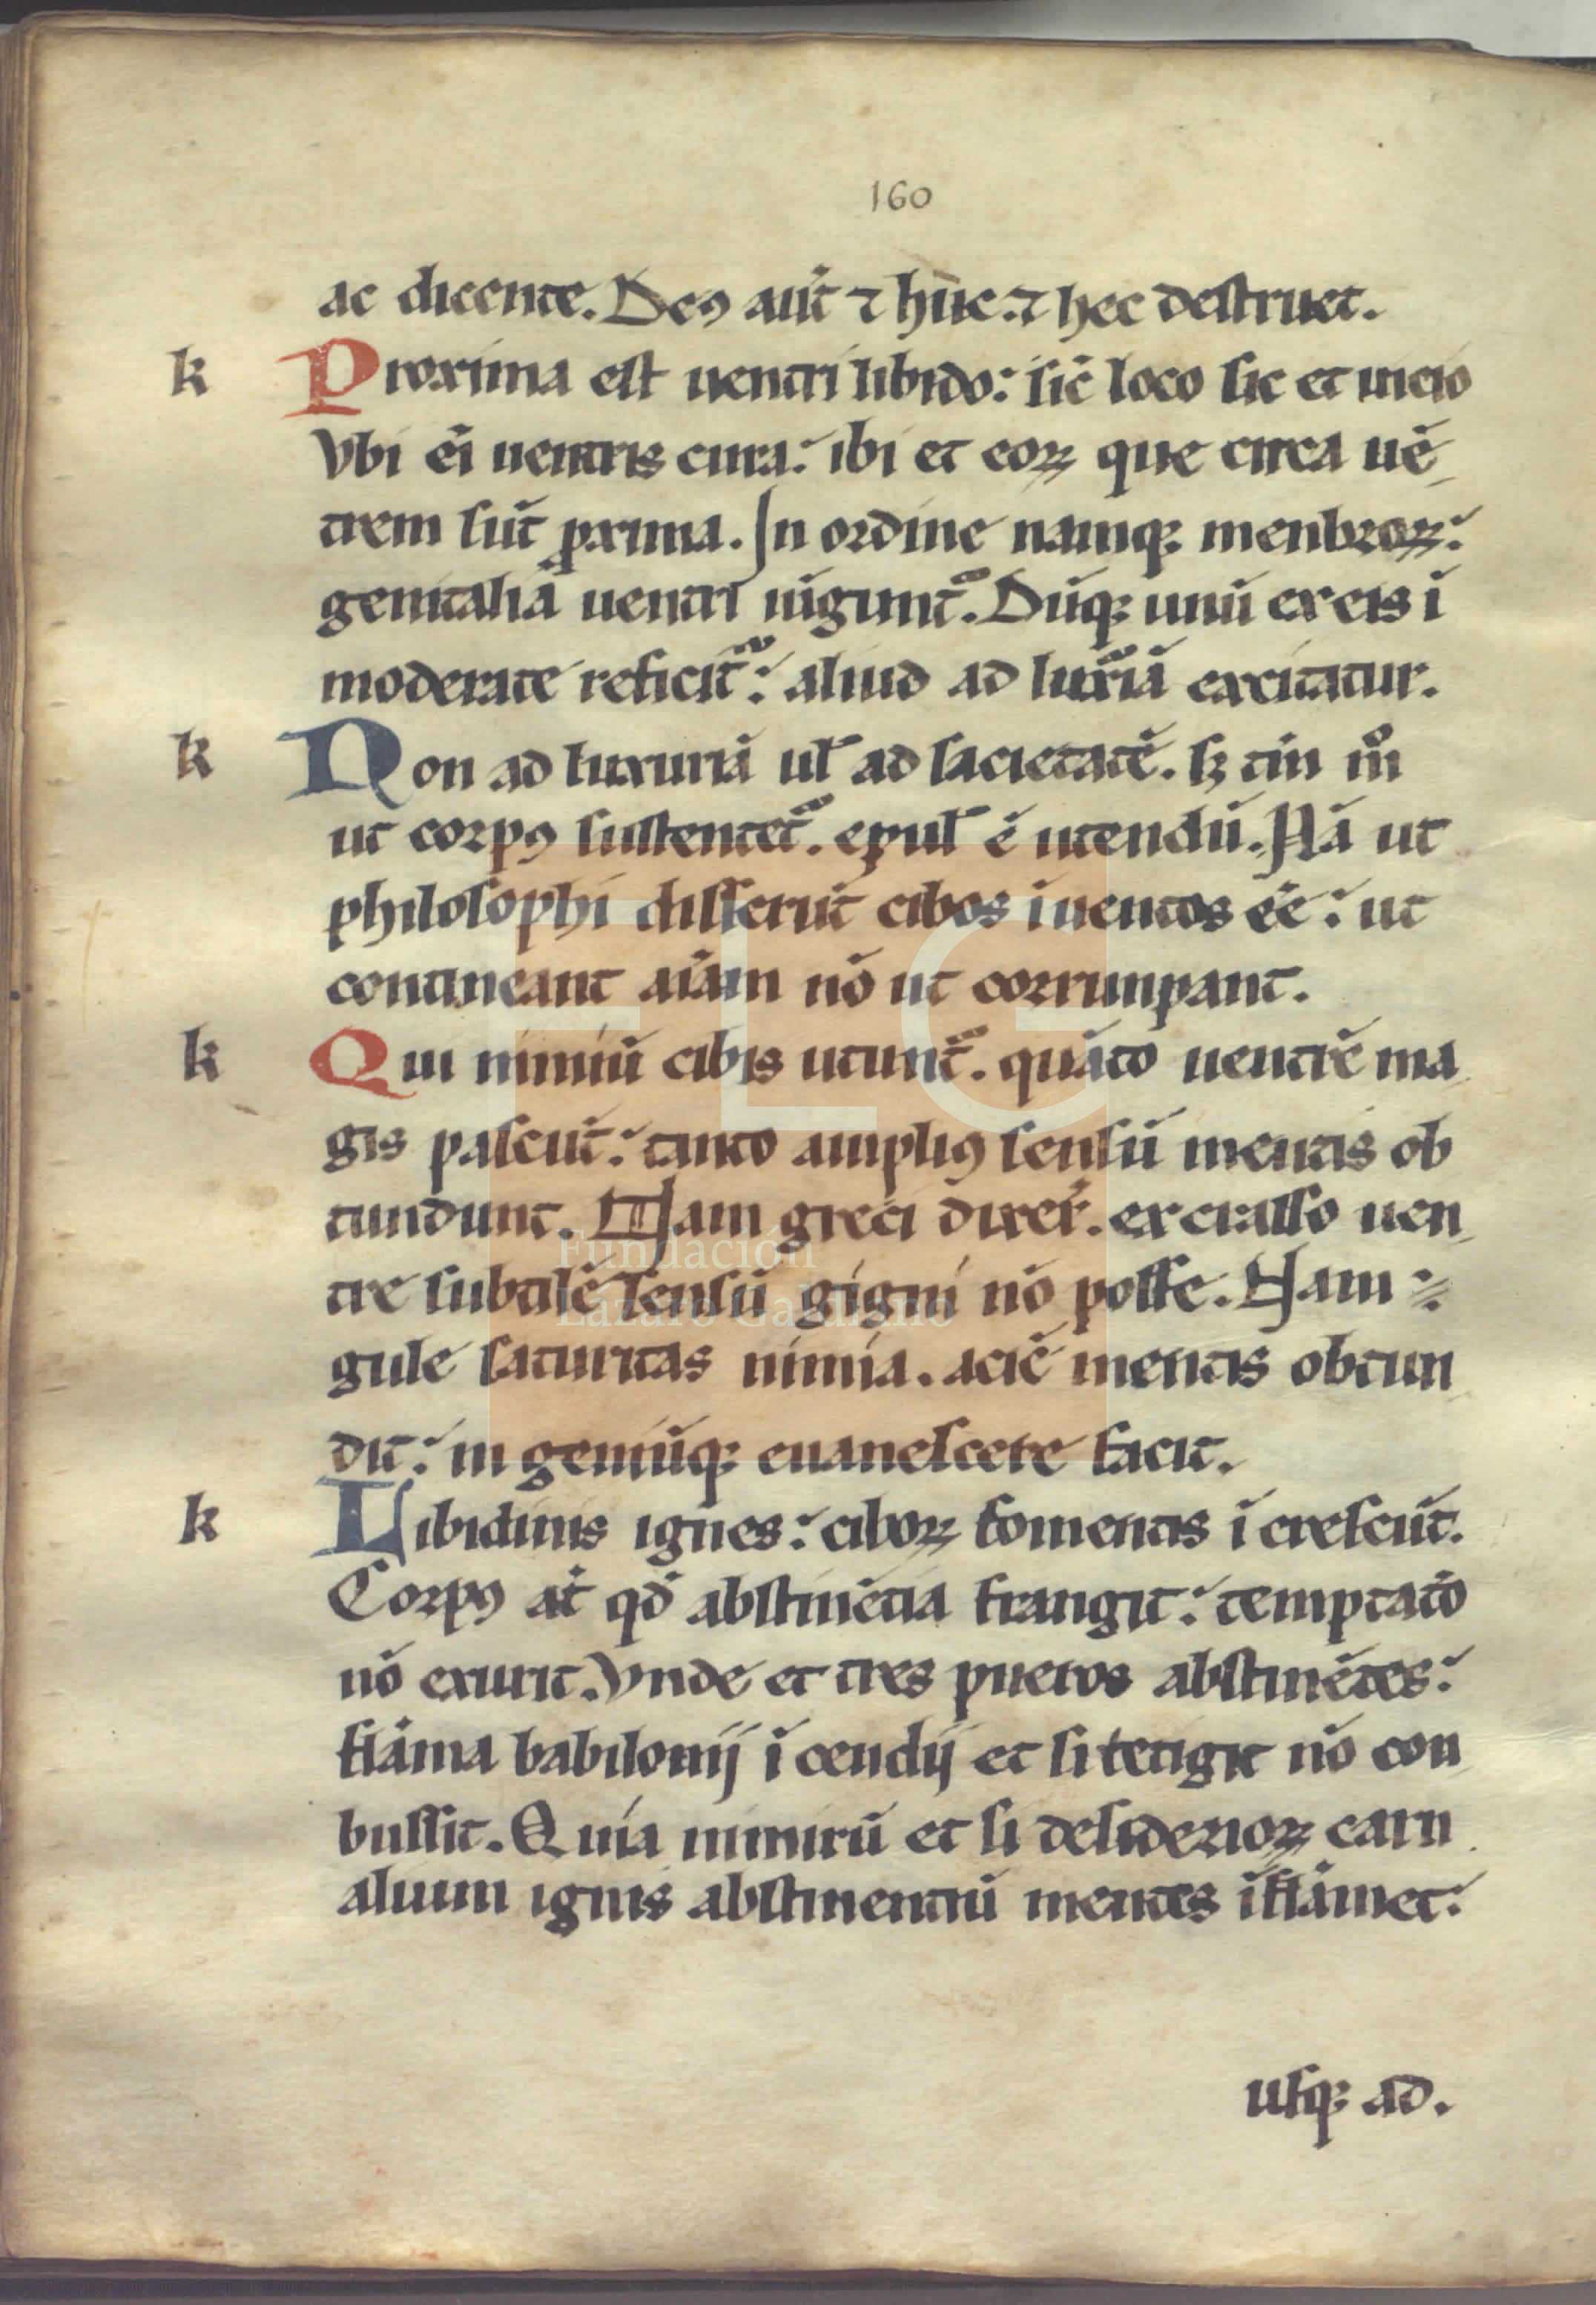 160
ac dicente. Deꝰ aut̃ ⁊ hũc. ⁊ hec destruet.
k Proxima est uentri libido: sic̃ loco sic et uicio
Vbi ei̇ uentris cura: ibi et eoꝝ que circa uẽ
trem sũt ꝓxima. In ordine namqꝫ menbroꝝ:
genitalia uentri iũgunt᷑. Dũqꝫ unũ ex eis ĩ
moderate reficit᷑: aliud ad luxʳiã excitatur.
k Non ad luxuriã ul̃ ad sacietatẽ. sꝫ tm̃ m̊
ut corpꝰ sustentet᷑. epul̃ ẽ utendũ. Nã ut
philosophi disserũt cibos ĩuentos ẽe: ut
contineant aĩam nõ ut corrunpant.
k Qui nimiũ cibis utunt᷑. quãto uentrẽ ma
gis pascũt: tanto ampliꝰ sensũ mentis ob
tundunt. Nam greci dixer̃. ex crasso uen
tre subtilẽ sensũ gigni nõ posse. Nam
gule saturitas nimia. aciẽ mentis obtun
dit: in geniũqꝫ euanescere facit.
k Libidinis ignes: ciboꝝ fomentis ĩ crescũt.
Corpꝰ at̃ qđ abstinẽtia frangit: temptatõ
nõ exurit. Vnde et tres pueros abstinẽtes:
flãma babilonij ĩ cendij et si tetigit nõ con
bussit. Quia nimirũ et si desiderioꝝ carn
alium ignis abstinentiũ mentes ĩflãmet:
usqꝫ ad.
FLG
Fundación
Lázaro Galdiano